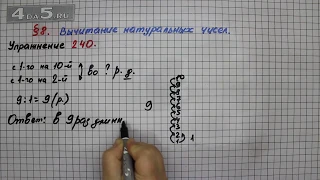 4DS.RU
§8. Вычитание натуральных чисел.
Упражнение 240.
с 1-го на 10-й
с 1-го на 2-й } во ? р. д.
9:1=9(р.)
Ответ: в 9 раз длинн
9
1